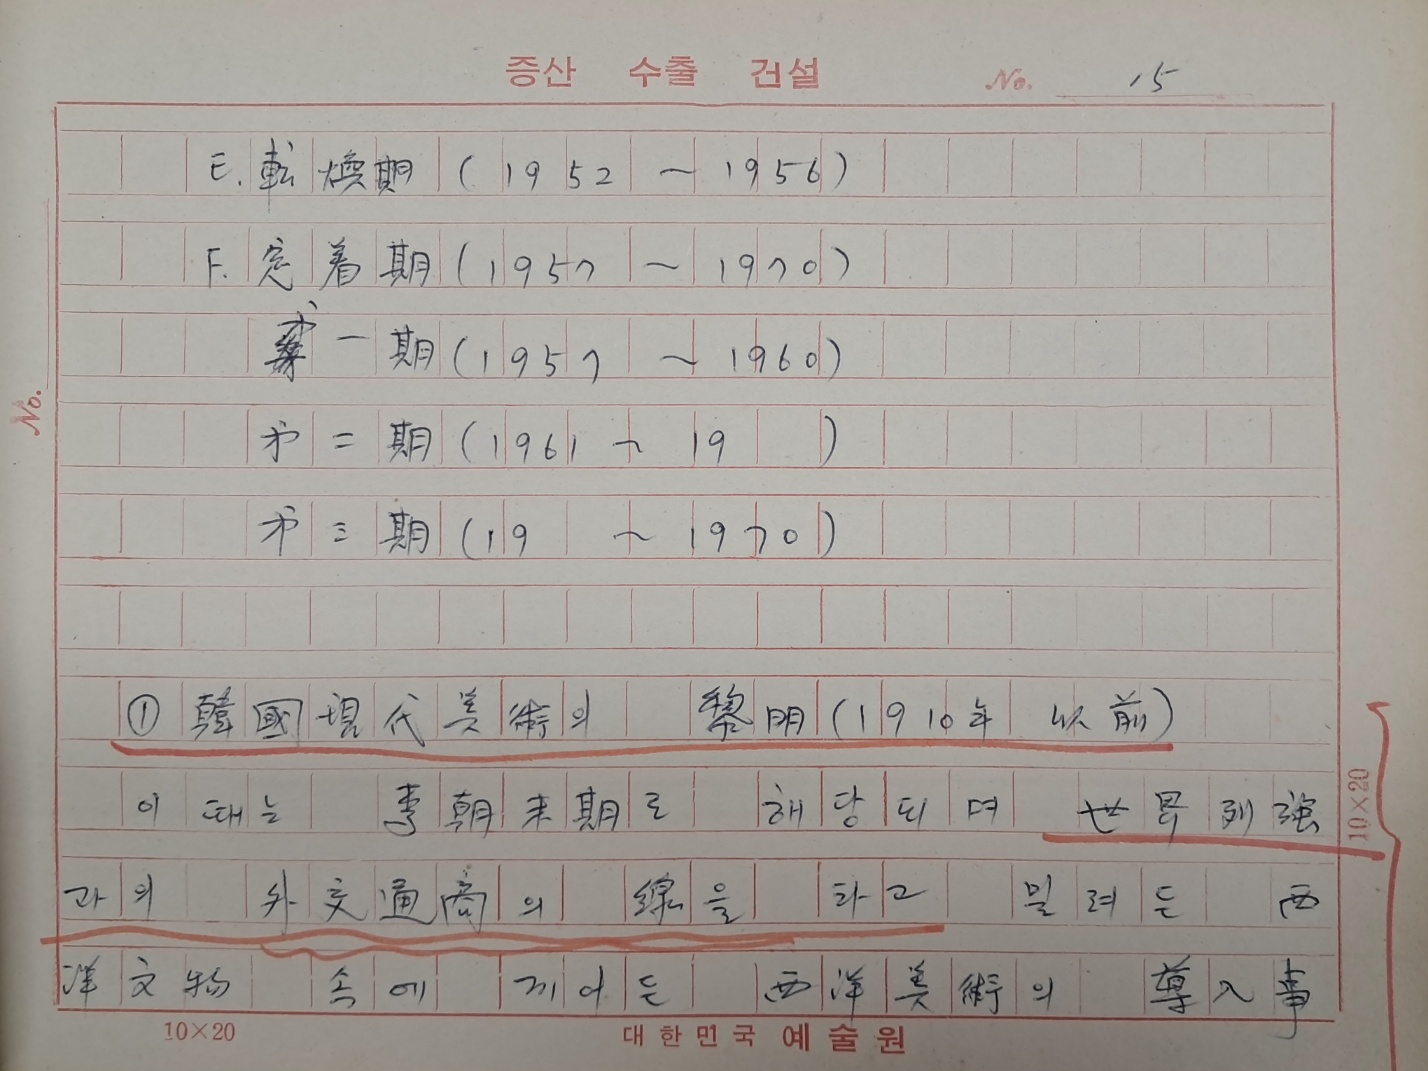 증산 수출 건설 No. 15
E. 転煥期 (1952 ~ 1956)
F. 定着期 (1957 ~ 1970)
第一期 (1957 ~ 1960)
㐧二期 (1961 ~ 19 )
㐧三期 (19 ~ 1970)
① 韓國現代美術의 黎明 (1910年 以前)
이 때는 李朝末期로 해당되며 世界列強
과의 外交通商의 線을 타고 밀려든 西
洋文物 속에 끼어든 西洋美術의 導入事
No.
10×20
10×20
대한민국 예술원